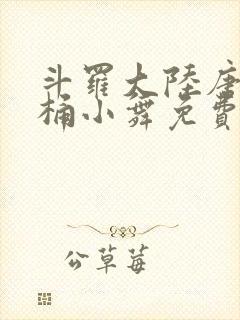 斗羅大陸唐
桶小舞免費
公草莓